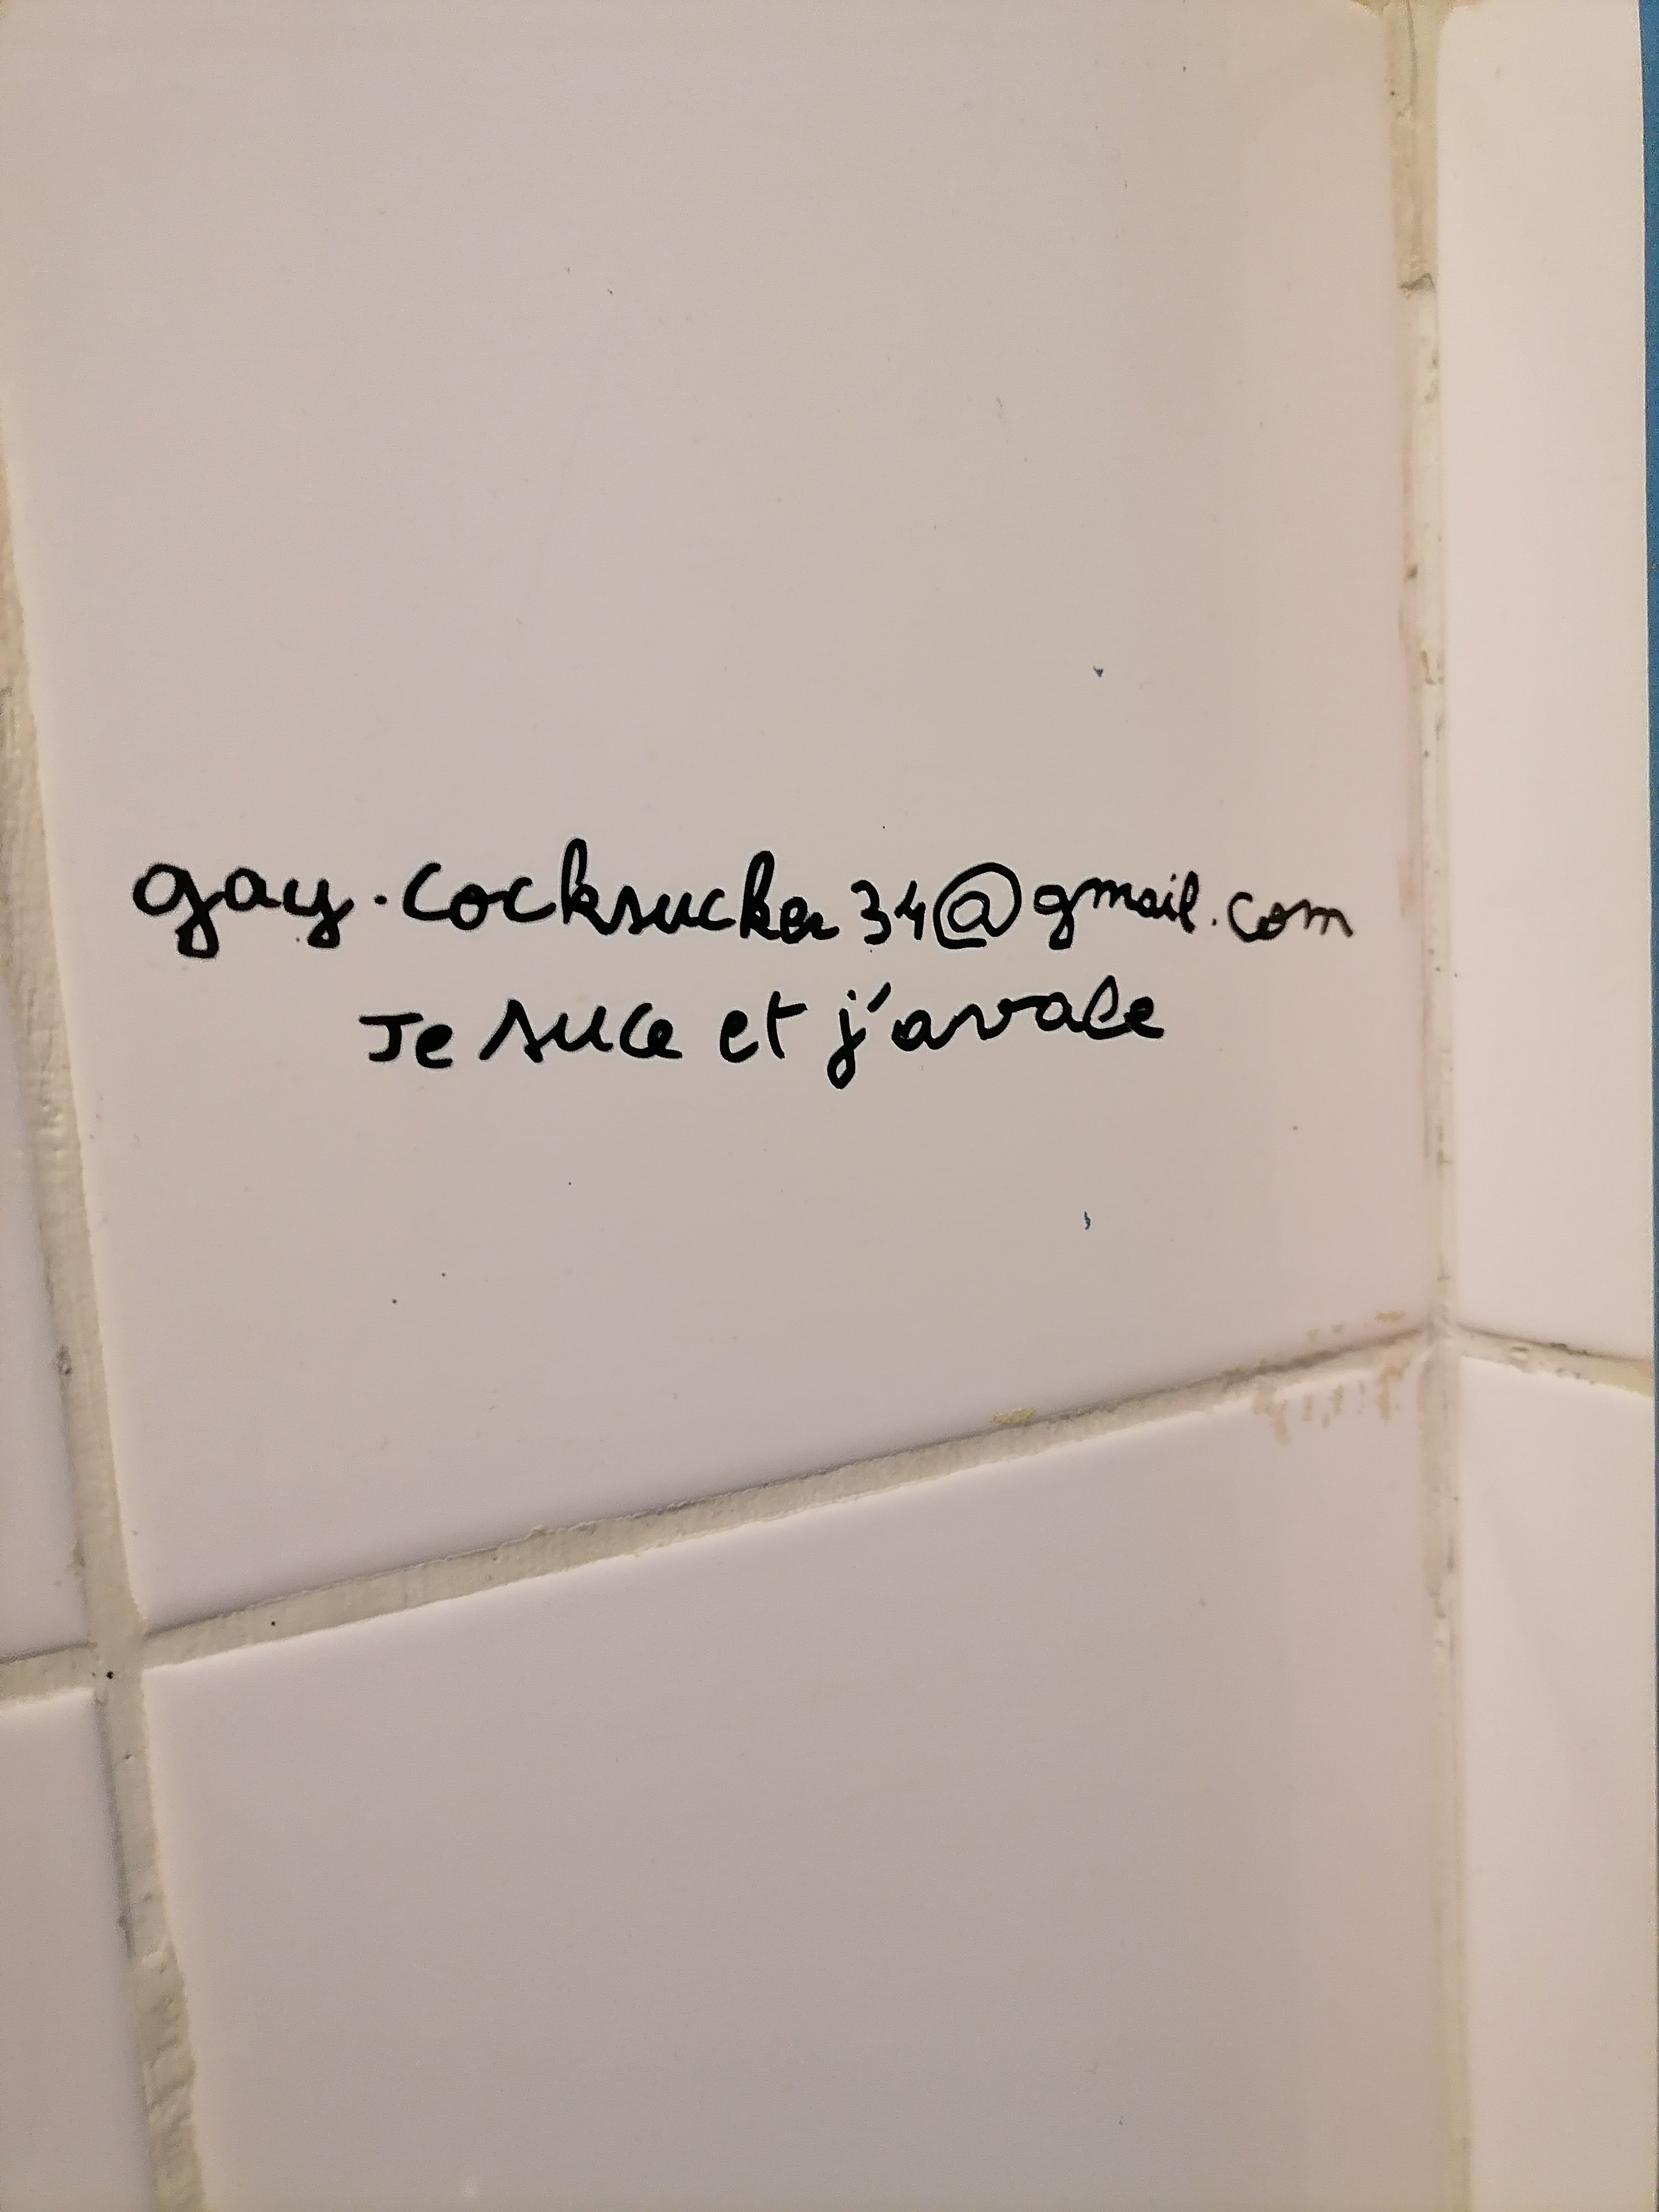 gay.cocksucker34@gmail.com
Je suce et j'avale